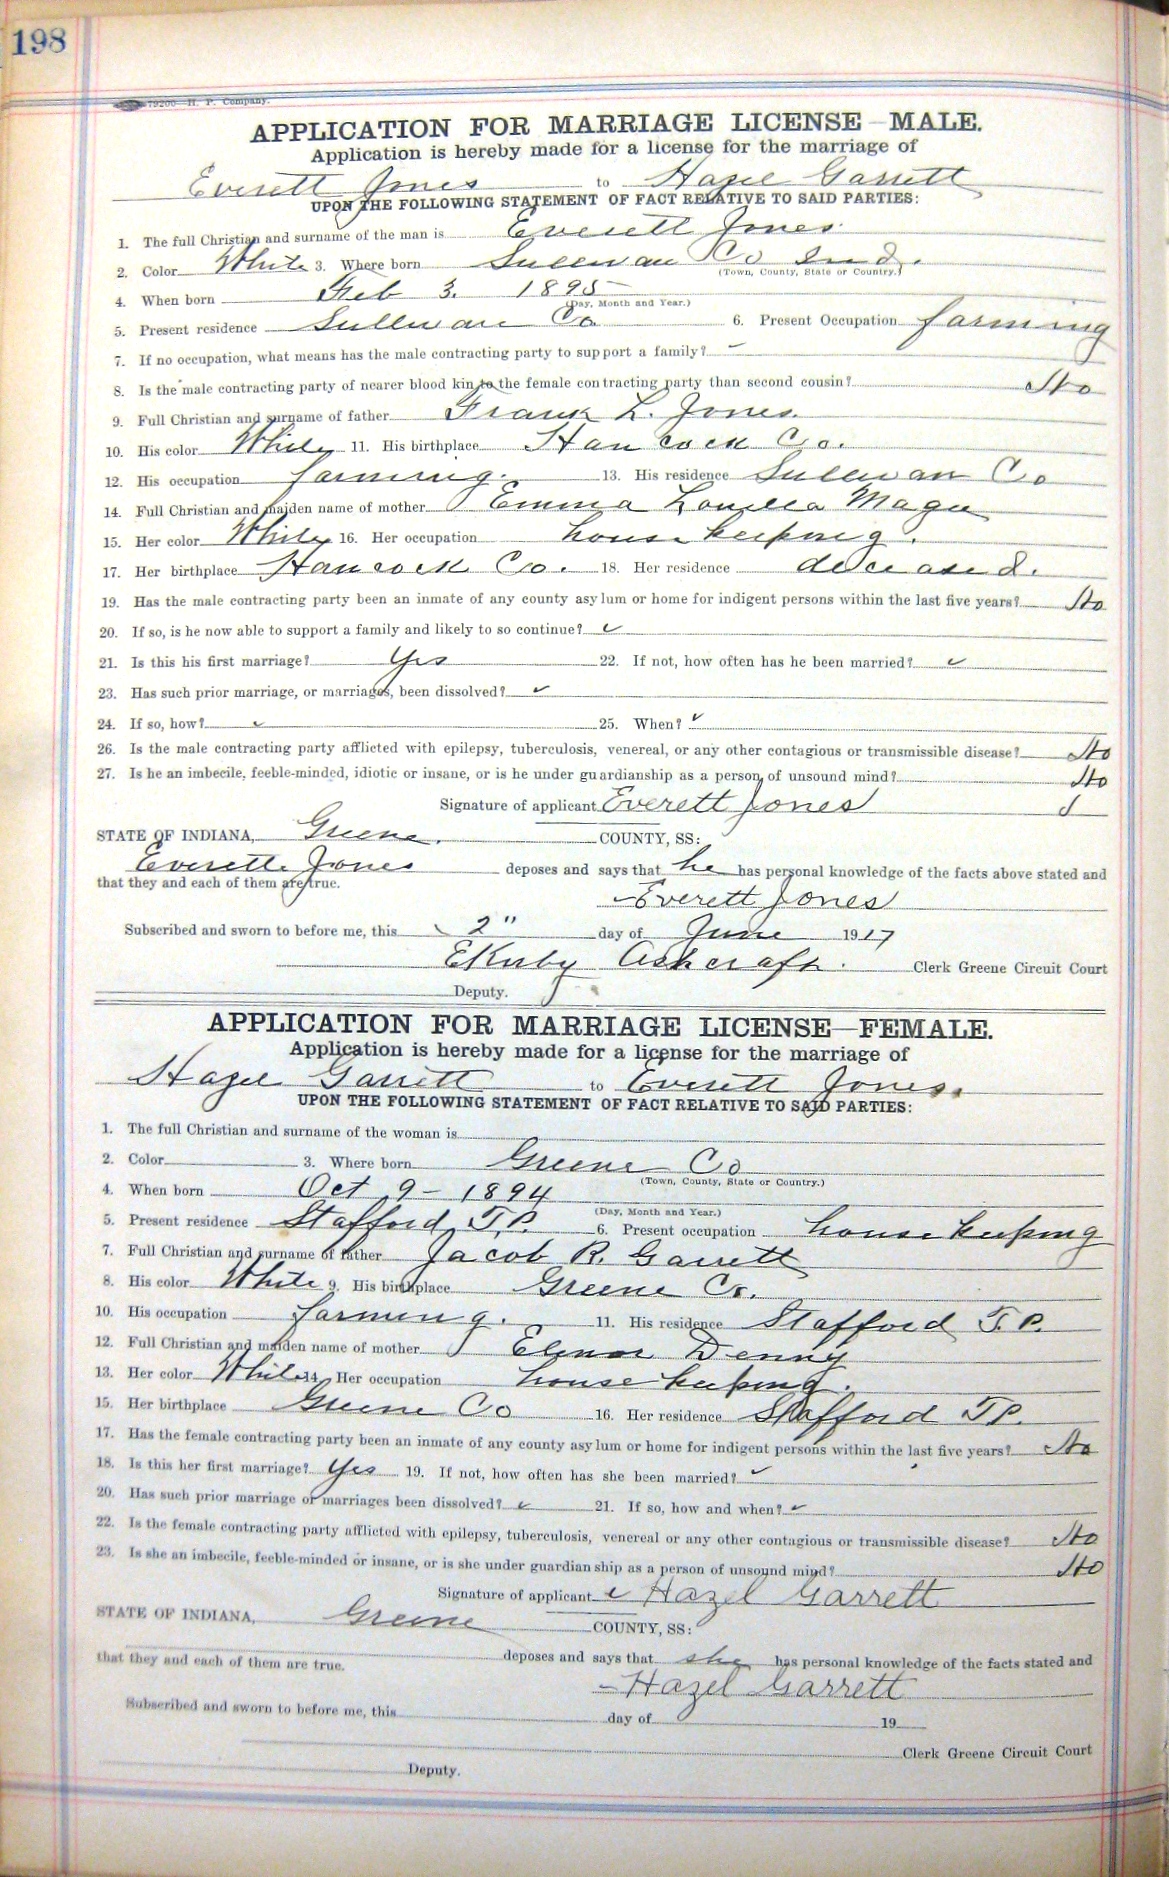 198
79200—H. P. Company.
APPLICATION FOR MARRIAGE LICENSE—MALE.
Application is hereby made for a license for the marriage of
Everett Jones to Hazel Garrett
UPON THE FOLLOWING STATEMENT OF FACT RELATIVE TO SAID PARTIES:
1. The full Christian and surname of the man is Everett Jones
2. Color White 3. Where born Sullivan Co Ind.
(Town, County, State or Country.)
4. When born Feb 3. 1895
(Day, Month and Year.)
5. Present residence Sullivan Co 6. Present Occupation farming
7. If no occupation, what means has the male contracting party to support a family? –
8. Is the male contracting party of nearer blood kin to the female contracting party than second cousin? No
9. Full Christian and surname of father Frank L. Jones.
10. His color White 11. His birthplace Hancock Co.
12. His occupation farming. 13. His residence Sullivan Co
14. Full Christian and maiden name of mother Emma Magee
15. Her color White 16. Her occupation house keeping.
17. Her birthplace Hancock Co. 18. Her residence deceased.
19. Has the male contracting party been an inmate of any county asylum or home for indigent persons within the last five years? No
20. If so, is he now able to support a family and likely to so continue? ✓
21. Is this his first marriage? Yes 22. If not, how often has he been married? ✓
23. Has such prior marriage, or marriages, been dissolved? ✓
24. If so, how? ✓ 25. When? ✓
26. Is the male contracting party afflicted with epilepsy, tuberculosis, venereal, or any other contagious or transmissible disease? No
27. Is he an imbecile, feeble-minded, idiotic or insane, or is he under guardianship as a person of unsound mind? No
Signature of applicant Everett Jones
STATE OF INDIANA, Greene COUNTY, SS:
Everett Jones deposes and says that he has personal knowledge of the facts above stated and
that they and each of them are true.
Everett Jones
Subscribed and sworn to before me, this 2" day of June 1917
Ashcraft. Clerk Greene Circuit Court
Deputy.
APPLICATION FOR MARRIAGE LICENSE—FEMALE.
Application is hereby made for a license for the marriage of
Hazel Garrett to Everett Jones.
UPON THE FOLLOWING STATEMENT OF FACT RELATIVE TO SAID PARTIES:
1. The full Christian and surname of the woman is
2. Color 3. Where born Greene Co
(Town, County, State or Country.)
4. When born Oct 9 – 1894
(Day, Month and Year.)
5. Present residence Stafford T.P. 6. Present occupation house keeping
7. Full Christian and surname of father Jacob R. Garrett
8. His color White 9. His birthplace Greene Co.
10. His occupation farming. 11. His residence Stafford T.P.
12. Full Christian and maiden name of mother Elinor Denny
13. Her color White 14. Her occupation house keeping.
15. Her birthplace Greene Co 16. Her residence Stafford TP.
17. Has the female contracting party been an inmate of any county asylum or home for indigent persons within the last five years? No
18. Is this her first marriage? Yes 19. If not, how often has she been married? ✓
20. Has such prior marriage or marriages been dissolved? ✓ 21. If so, how and when? ✓
22. Is the female contracting party afflicted with epilepsy, tuberculosis, venereal or any other contagious or transmissible disease? No
23. Is she an imbecile, feeble-minded or insane, or is she under guardianship as a person of unsound mind? No
Signature of applicant Hazel Garrett
STATE OF INDIANA, Greene COUNTY, SS:
deposes and says that she has personal knowledge of the facts stated and
that they and each of them are true.
Hazel Garrett
Subscribed and sworn to before me, this day of 19
Clerk Greene Circuit Court
Deputy.